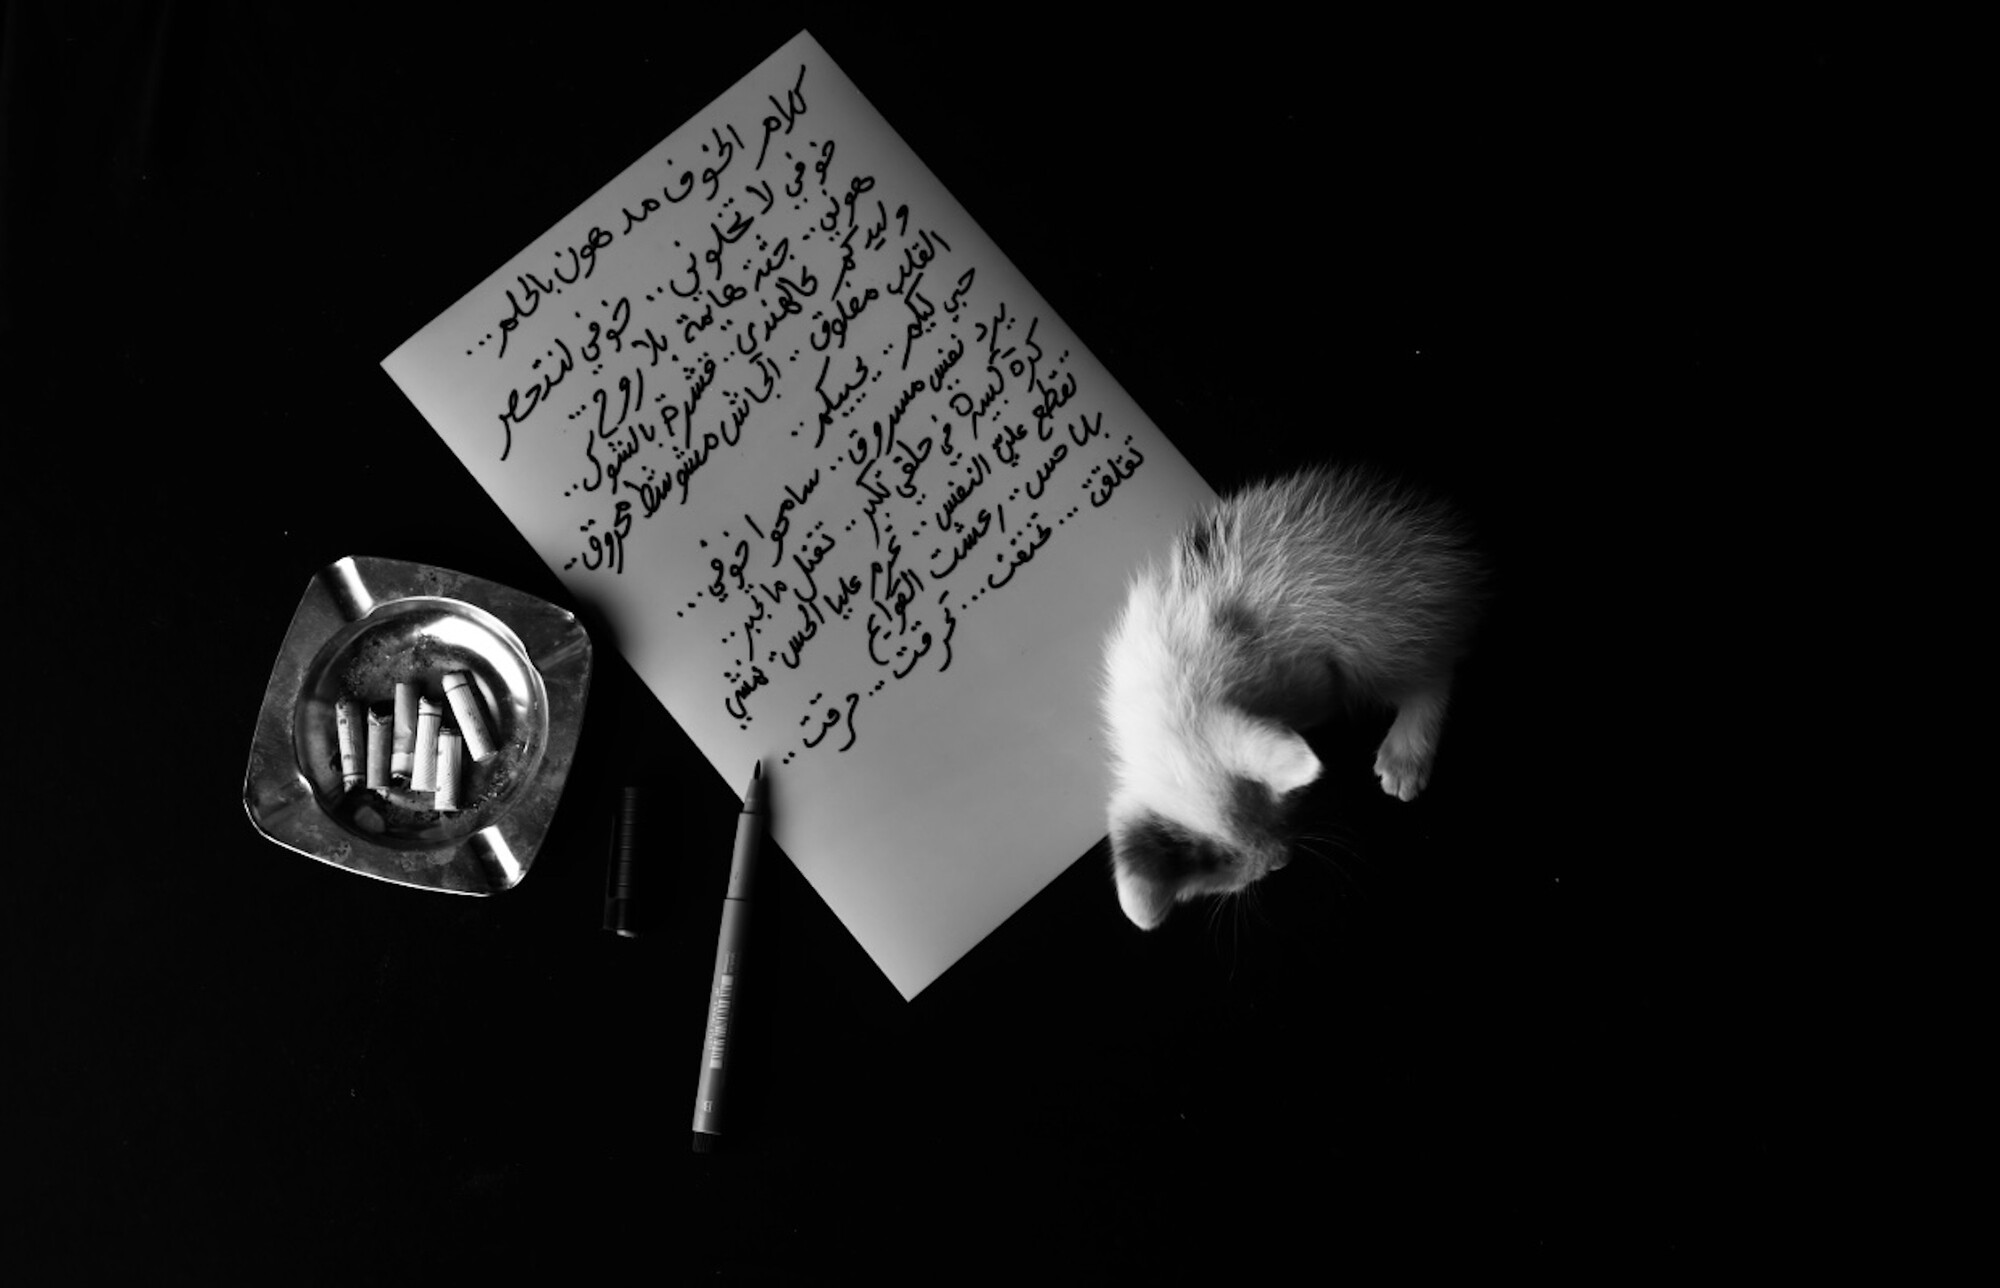 كلام الخوف مدهون بالحلم...
خوفي لا تخلوني.. خوفي لننتحر
هوني.. جثة هائمة بلا روح...
وليدكم كالهندي.. قشرة بالشوك..
القلب مفلوق.. الجاش مشوشط محروق..
حبي ليكم.. يحييكم..
يبرد نفس مسروق.. سامحوا خوفي...
كرة كبيرة في حلقي تكبر.. تقتل ما تجبر..
تقطع عليّ النفس.. تحرم عليا الحس نمشي
بلا حس.. رعشت القوايم
تقلقت... تخنقت... تحرقت... حرقت..